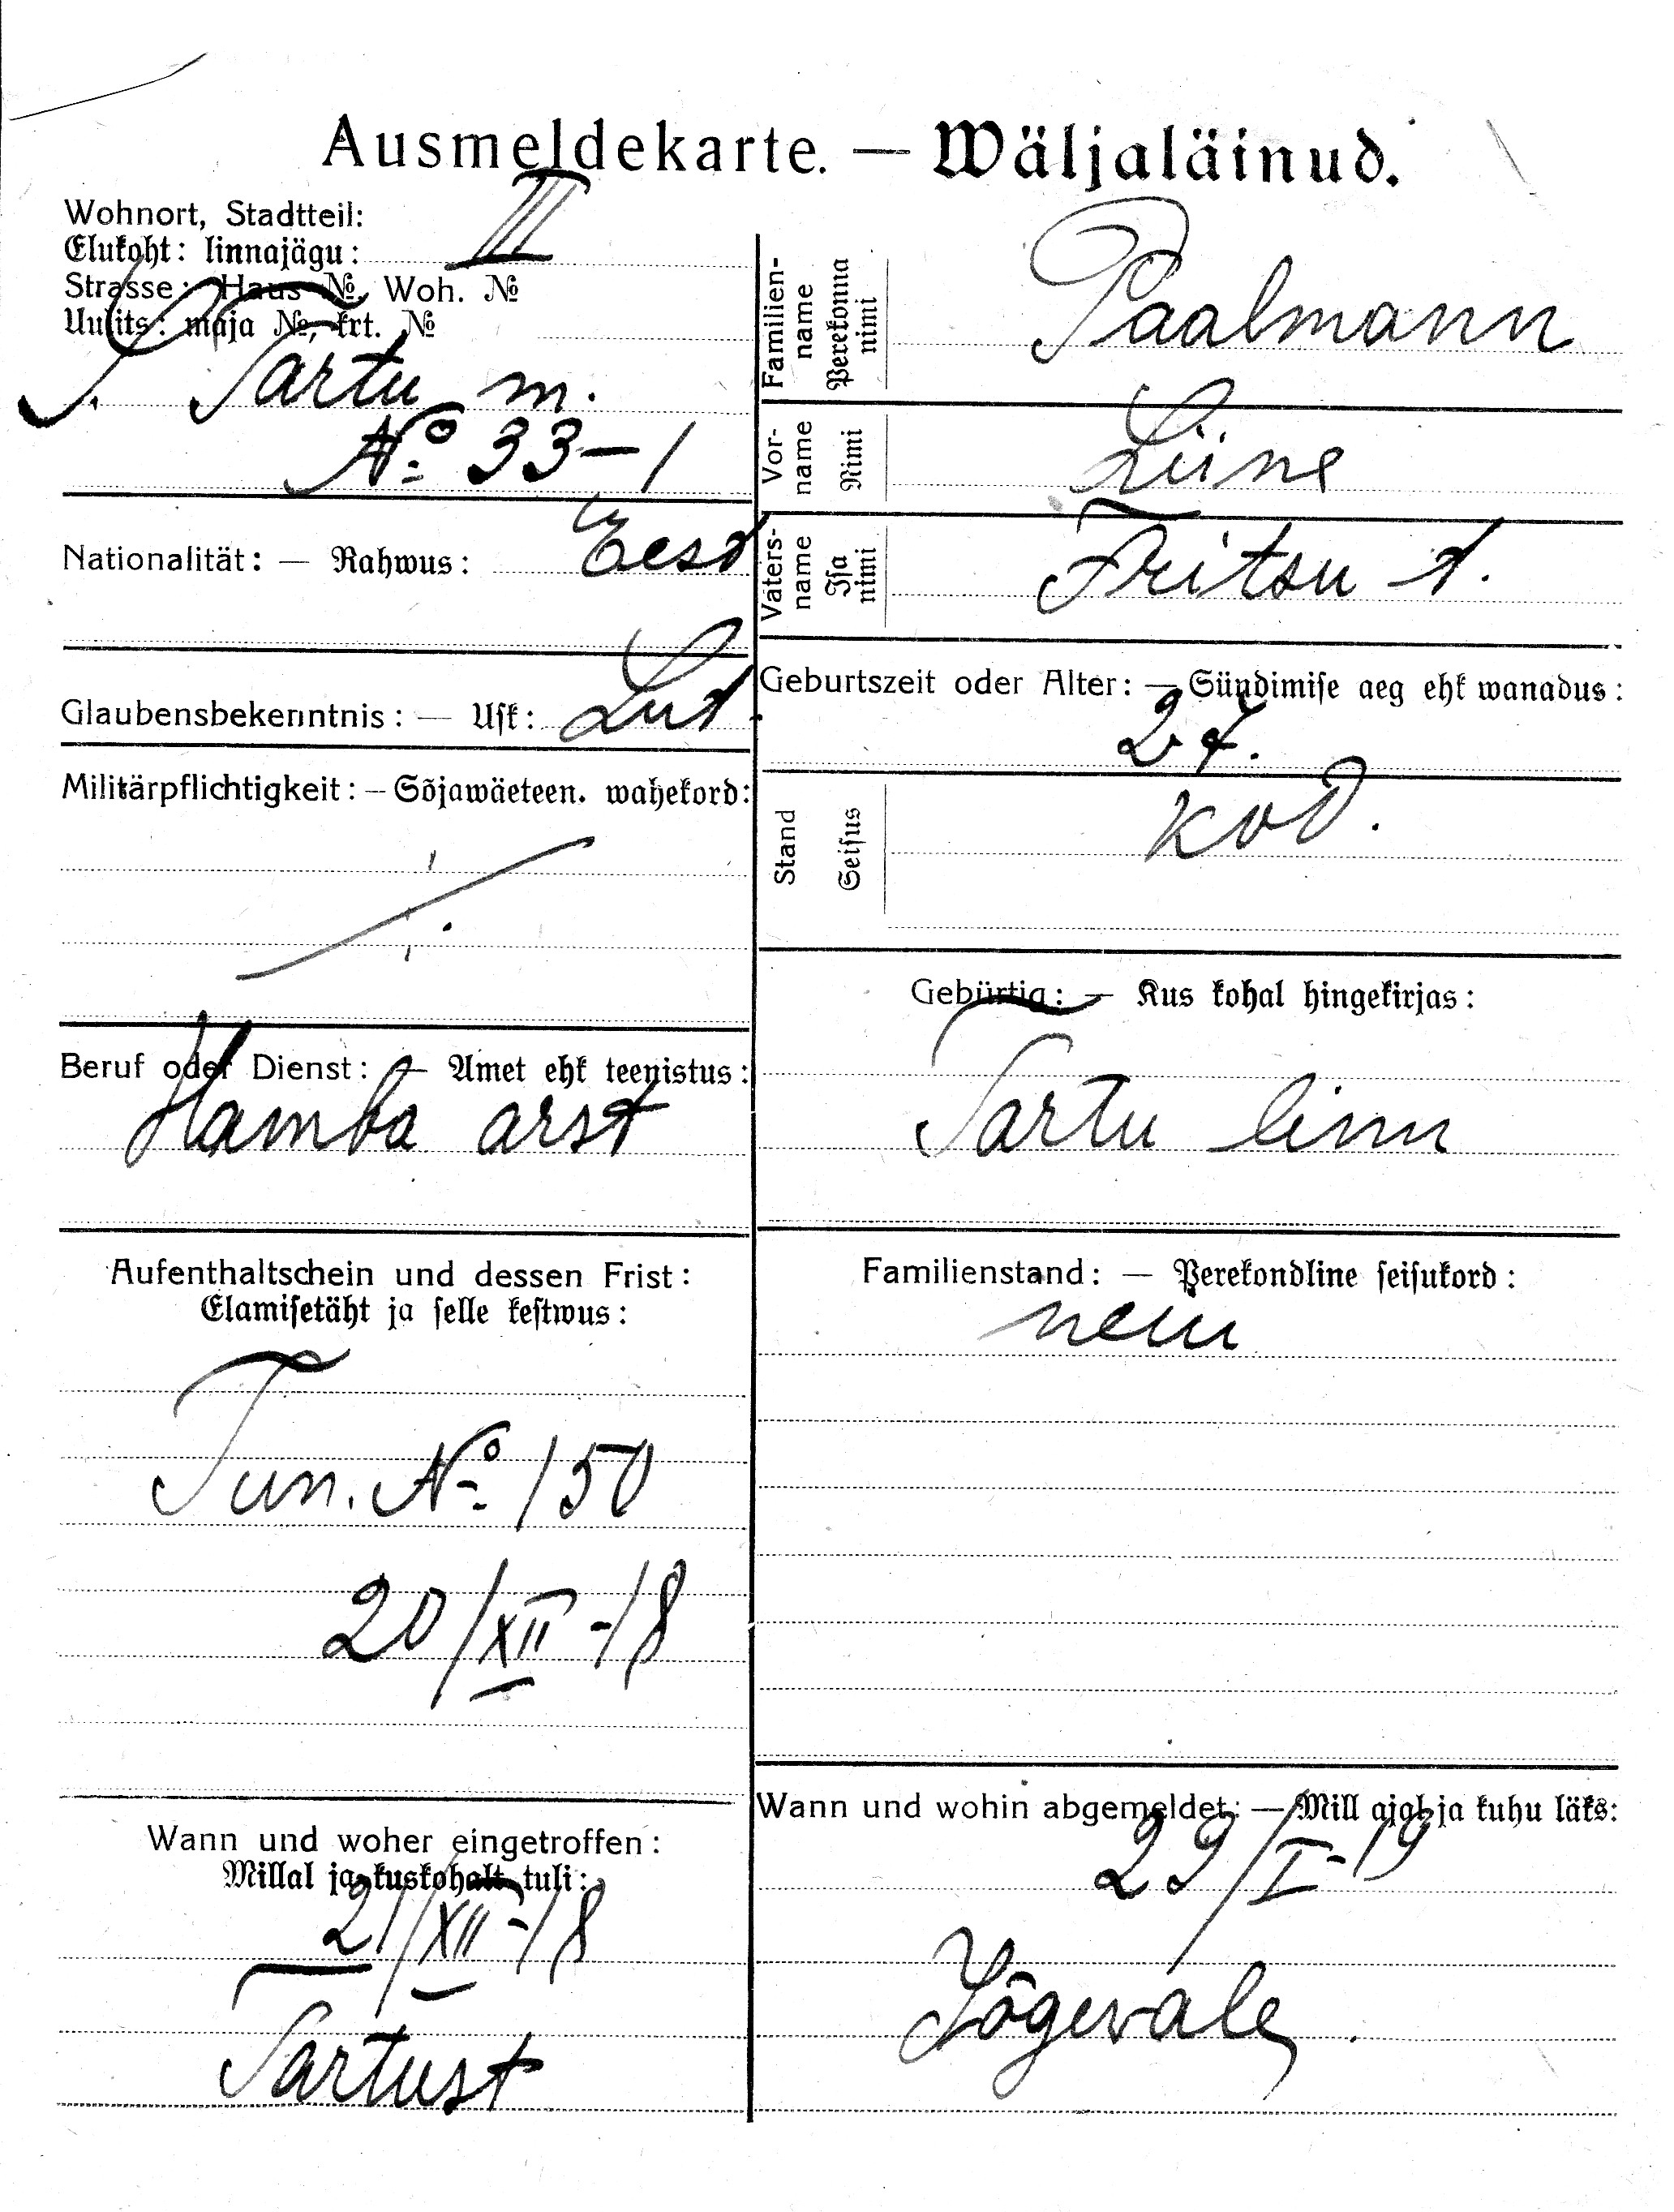 Ausmeldekarte. — Wäljaläinud.
Wohnort, Stadtteil:
Elukoht: linnajägu: III
Strasse: Haus №, Woh. №
Uulits: maja №, krt. №
S. Tartu m.
№ 33-1
Nationalität: — Rahwus: Eest
Glaubensbekenntnis: — Usk: Lut.
Militärpflichtigkeit: — Sõjawäeteen. wahekord:
Beruf oder Dienst: — Amet ehk teenistus:
Hamba arst
Aufenthaltschein und dessen Frist:
Elamisetäht ja selle kestwus:
Tun. № 150
20/XII-18
Wann und woher eingetroffen:
Millal ja kuskohalt tuli:
21/XII-18
Tartust
Familien-
name
Perekonna
nimi
Paalmann
Vor-
name
Nimi
Liine
Vaters-
name
Isa
nimi
Fritsu t.
Geburtszeit oder Alter: — Sündimise aeg ehk wanadus:
27.
Stand
Seisus
kod.
Gebürtig: — Kus kohal hingekirjas:
Tartu linn
Familienstand: — Perekondline seisukord:
neiu
Wann und wohin abgemeldet: — Mill ajal ja kuhu läks:
29/I-19
Jõgewale.